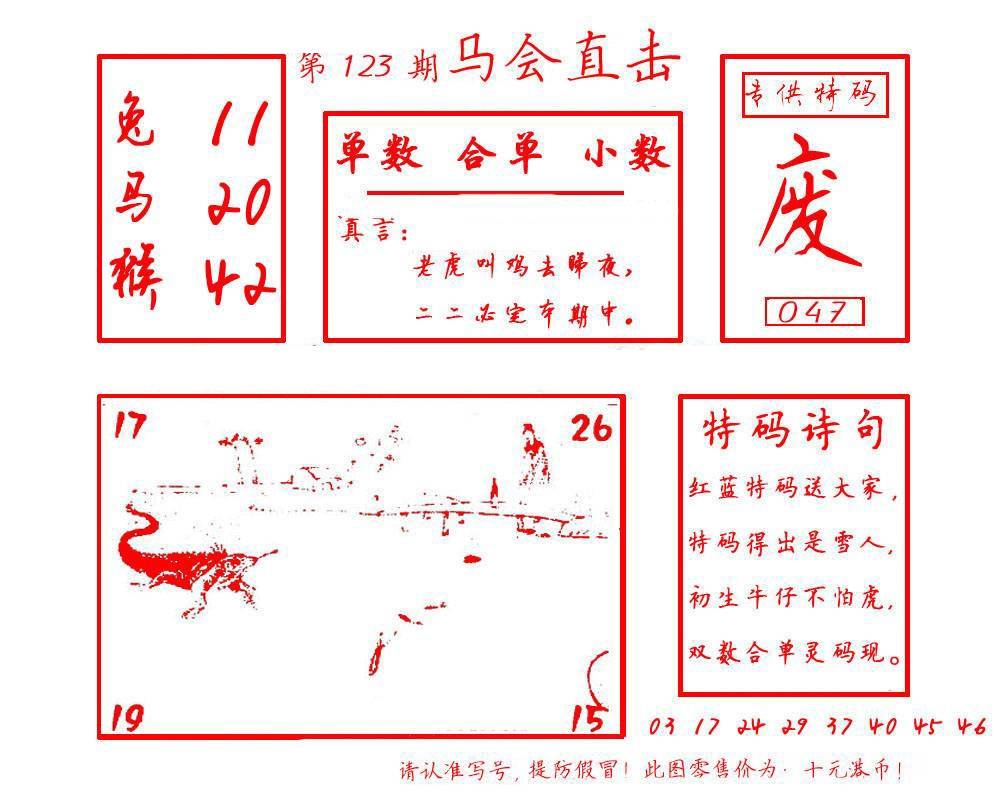 第 123 期 马会直击
兔 11
马 20
猴 42
单数 合单 小数
真言：
老虎叫鸡去睇夜，
二二必定本期中。
专供特码
废
047
17
26
19
15
特码诗句
红蓝特码送大家，
特码得出是雪人，
初生牛仔不怕虎，
双数合单灵码现。
03 17 24 29 37 40 45 46
请认准写号，提防假冒！此图零售价为·十元港币！